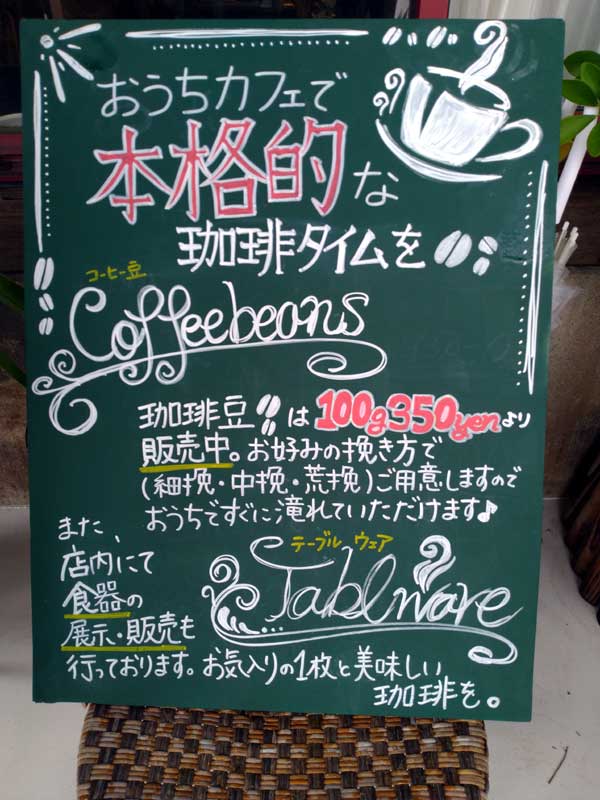 おうちカフェで
本格的な
珈琲タイムを
コーヒー豆
Coffeebeans
珈琲豆は100g350yenより
販売中。お好みの挽き方で
(細挽・中挽・荒挽)ご用意しますので
おうちですぐに滝れていただけます♪
また、
店内にて
食器の
展示・販売も
行っております。お気入りの1枚と美味しい
珈琲を。
テーブル ウェア
Tablware